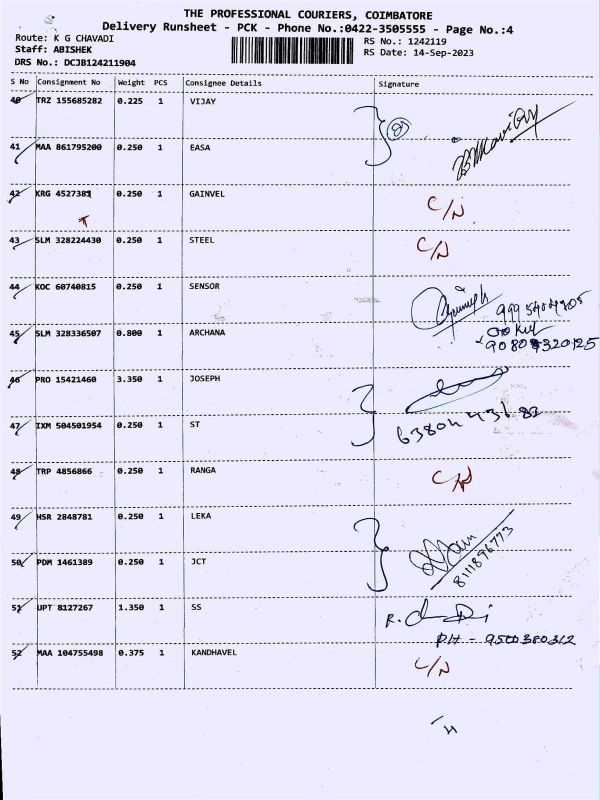 THE PROFESSIONAL COURIERS, COIMBATORE
Delivery Runsheet - PCK - Phone No.:0422-3505555 - Page No.:4
Route: K G CHAVADI
RS No.: 1242119
Staff: ABISHEK
RS Date: 14-Sep-2023
DRS No.: DCJB124211904
S No Consignment No Weight PCS Consignee Details Signature
40 TRZ 155685282 0.225 1 VIJAY
41 MAA 861795200 0.250 1 EASA
42 KRG 4527381 0.250 1 GAINVEL C/N
43 SLM 328224430 0.250 1 STEEL C/N
44 KOC 60740815 0.250 1 SENSOR
45 SLM 328336507 0.800 1 ARCHANA
46 PRO 15421460 3.350 1 JOSEPH
47 IXM 504501954 0.250 1 ST
48 TRP 4856866 0.250 1 RANGA C/N
49 HSR 2848781 0.250 1 LEKA
50 PDM 1461389 0.250 1 JCT 8111896773
51 UPT 8127267 1.350 1 SS
PH - 9500380312
52 MAA 104755498 0.375 1 KANDHAVEL C/N